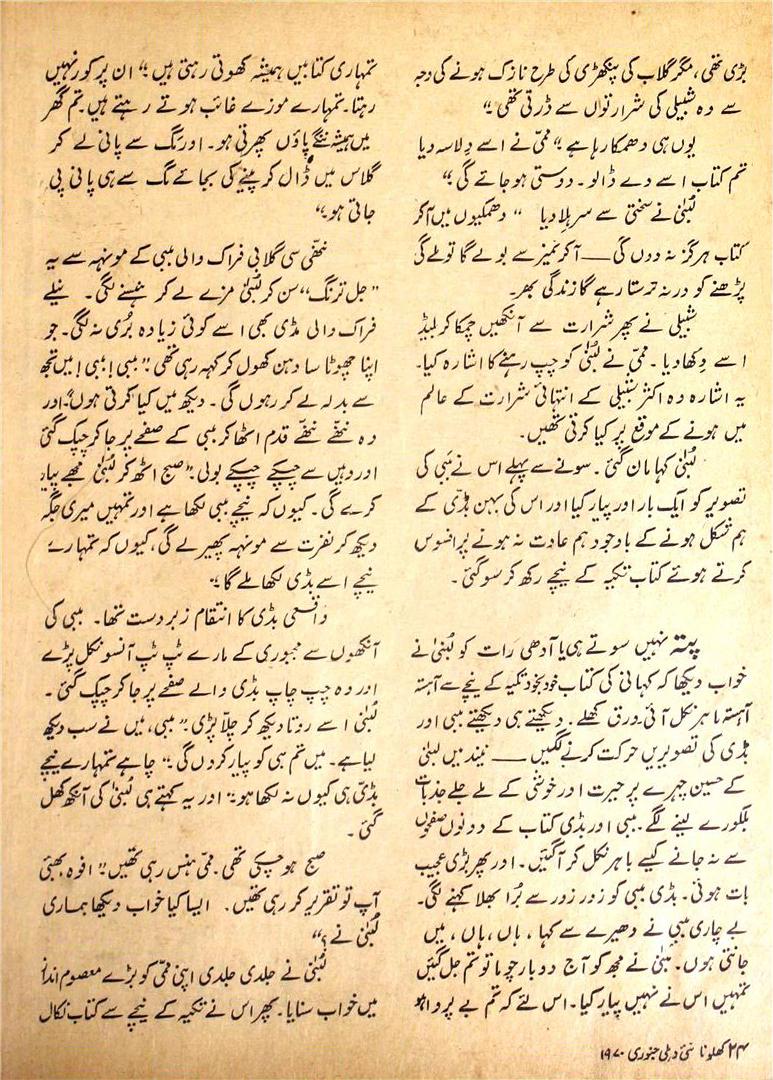 بڑی تھی، مگر گلاب کی پنکھڑی کی طرح نازک ہونے کی وجہ
سے وہ شبیلی کی شرارتوں سے ڈرتی تھی۔“
یوں ہی دھمکا رہا ہے“ ممّی نے اسے دلاسہ دیا
تم کتاب اسے دے ڈالو۔ دوستی ہو جائے گی۔“
لُبنیٰ نے سختی سے سر ہلا دیا ”دھمکیوں میں آ کر
کتاب ہرگز نہ دوں گی ـــــ آ کر تمیز سے بولے گا تو ملے گی
پڑھنے کو ورنہ ترستا رہے گا زندگی بھر۔
شبیلی نے پھر شرارت سے آنکھیں چمکا کر بلیڈ
اسے دکھا دیا۔ ممّی نے لُبنیٰ کو چپ رہنے کا اشارہ کیا۔
یہ اشارہ وہ اکثر شبیلی کے انتہائی شرارت کے عالم
میں ہونے کے موقع پر کیا کرتی تھیں۔
لُبنیٰ کہا مان گئی۔ سونے سے پہلے اس نے ببی کی
تصویر کو ایک بار اور پیار کیا اور اس کی بہن بڈّی کے
ہم شکل ہونے کے باوجود ہم عادت نہ ہونے پر افسوس
کرتے ہوئے کتاب تکیہ کے نیچے رکھ کر سو گئی۔
پتہ نہیں سوتے ہی یا آدھی رات کو لُبنیٰ نے
خواب دیکھا کہ کہانی کی کتاب خود بخود تکیہ کے نیچے سے آہستہ
آہستہ باہر نکل آئی۔ ورق کھلے۔ دیکھتے ہی دیکھتے ببی اور
بڈی کی تصویریں حرکت کرنے لگیں ـــــ نیند میں لبنیٰ
کے حسین چہرے پر حیرت اور خوشی کے ملے جلے جذبات
ہلکورے لینے لگے۔ ببی اور بڈی کتاب کے دونوں صفحوں
سے نہ جانے کیسے باہر نکل کر آ گئیں۔ اور پھر بڑی عجیب
بات ہوئی۔ بڈی ببی کو زور زور سے بُرا بھلا کہنے لگی۔
بے چاری ببی نے دھیرے سے کہا، ہاں، ہاں، میں
جانتی ہوں۔ لبنیٰ نے مجھ کو آج دوبار چوما تو تم جل گئیں
تمہیں اس نے نہیں پیار کیا۔ اس لئے کہ تم بے پرواہ ہو
تمہاری کتابیں ہمیشہ کھوتی رہتی ہیں“ ان پر کور نہیں
رہتا۔ تمہارے موزے غائب ہوتے رہتے ہیں۔ تم گھر
میں ہمیشہ ننگے پاؤں پھرتی ہو۔ اور مگ سے پانی لے کر
گلاس میں ڈال کر پینے کی بجائے مگ سے ہی پانی پی
جاتی ہو۔“
ننھّی سی گلابی فراک والی ببی کے مونہہ سے یہ
”جل ترنگ“ سن کر لُبنیٰ مزے لے کر ہنسنے لگی۔ نیلے
فراک والی بڈی بھی اسے کوئی زیادہ بُری نہ لگی۔ جو
اپنا چھوٹا سا دہن کھول کر کہہ رہی تھی ”ببی! ببی! میں تجھ
سے بدلہ لے کر رہوں گی۔ دیکھ میں کیا کرتی ہوں“ اور
وہ ننھے ننھے قدم اٹھا کر ببی کے صفحے پر جا کر چپک گئی
اور وہیں سے چپکے چپکے بولی۔ ”صبح اٹھ کر لُبنیٰ مجھے پیار
کرے گی۔ کیوں کہ نیچے ببی لکھا ہے اور تمہیں میری جگہ
دیکھ کر نفرت سے مونہہ پھیر لے گی، کیوں کہ تمہارے
نیچے اسے بڈی لکھا ملے گا۔“
واقعی بڈی کا انتقام زبردست تھا۔ ببی کی
آنکھوں سے مجبوری کے مارے ٹپ ٹپ آنسو نکل پڑے
اور وہ چپ چاپ بڈی والے صفحے پر جا کر چپک گئی۔
لُبنیٰ اسے روتا دیکھ کر چلّا پڑی۔ ”ببی، میں نے سب دیکھ
لیا ہے۔ میں تم ہی کو پیار کروں گی۔“ چاہے تمہارے نیچے
بڈی ہی کیوں نہ لکھا ہو“ اور یہ کہتے ہی لُبنیٰ کی آنکھ کھل
گئی۔
صبح ہو چکی تھی۔ ممّی ہنس رہی تھیں۔ ”افوہ بھئی
آپ تو تقریر کر رہی تھیں۔ ایسا کیا خواب دیکھا ہماری
لُبنیٰ نے؟“
لُبنیٰ نے جلدی جلدی اپنی ممّی کو بڑے معصوم انداز
میں خواب سنایا۔ پھر اس نے تکیہ کے نیچے سے کتاب نکال
۲۴ کھلونا نئی دہلی جنوری ۱۹۷۰